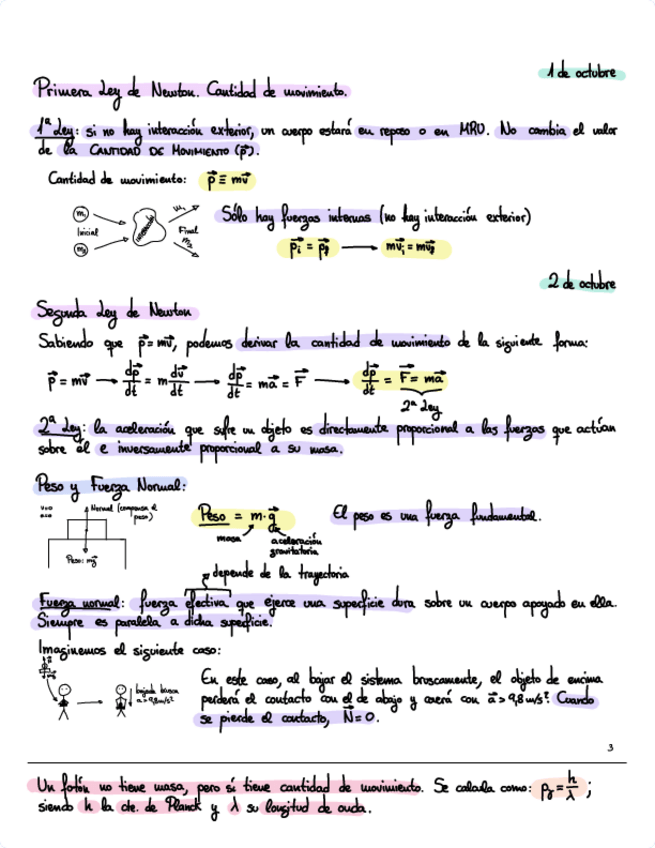 1 de octubre
Primera Ley de Newton. Cantidad de movimiento.
1ª Ley: si no hay interacción exterior, un cuerpo estará en reposo o en MRU. No cambia el valor
de la CANTIDAD DE MOVIMIENTO (p⃗).
Cantidad de movimiento: p⃗ ≡ mv⃗
m₁ Inicial m₂ interacción m₁ Final m₂
Sólo hay fuerzas internas (no hay interacción exterior)
p⃗ᵢ = p⃗f → mv⃗ᵢ = mv⃗f
2 de octubre
Segunda Ley de Newton
Sabiendo que p⃗ = mv⃗, podemos derivar la cantidad de movimiento de la siguiente forma:
p⃗ = mv⃗ → dp⃗/dt = m dv⃗/dt → dp⃗/dt = ma⃗ = F⃗ → dp⃗/dt = F⃗ = ma⃗
2ª Ley
2ª Ley: la aceleración que sufre un objeto es directamente proporcional a las fuerzas que actúan
sobre él e inversamente proporcional a su masa.
Peso y Fuerza Normal:
v=0
a=0
Normal (compensa el
peso)
Peso: mg⃗
Peso = m·g⃗
masa
aceleración
gravitatoria
El peso es una fuerza fundamental.
depende de la trayectoria
Fuerza normal: fuerza efectiva que ejerce una superficie dura sobre un cuerpo apoyado en ella.
Siempre es paralela a dicha superficie.
Imaginemos el siguiente caso:
bajada brusca
a > 9,8 m/s²
En este caso, al bajar el sistema bruscamente, el objeto de encima
perderá el contacto con el de abajo y caerá con a⃗ > 9,8 m/s². Cuando
se pierde el contacto, N⃗ = 0.
3
Un fotón no tiene masa, pero sí tiene cantidad de movimiento. Se calcula como: pᵧ = h/λ ;
siendo h la cte. de Planck y λ su longitud de onda.